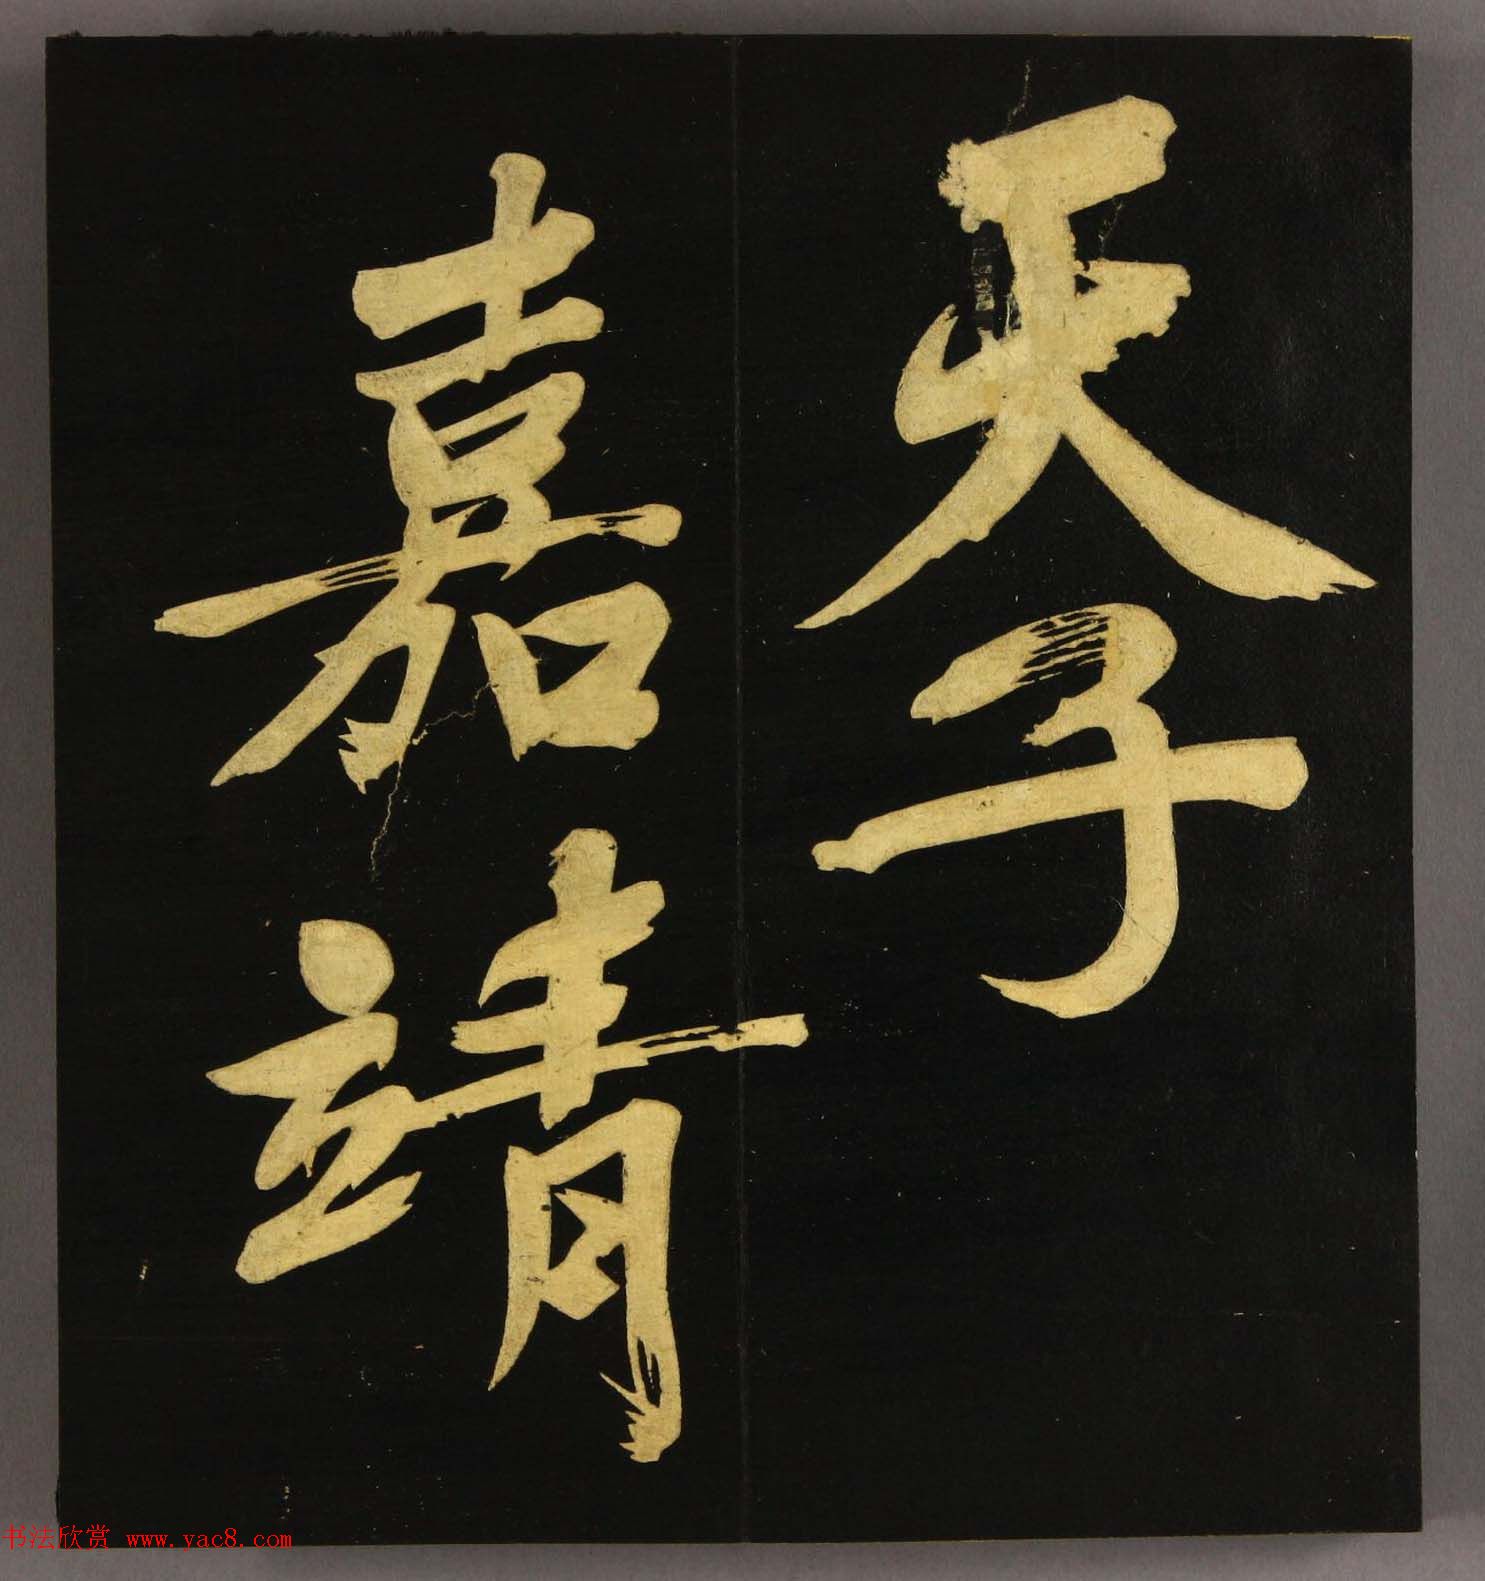 天子
嘉靖
书法欣赏 www.yac8.com